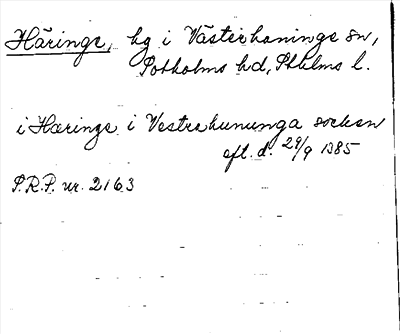 Häringe, hg i Västerhaninge sn,
Sotholms hd, Sthlms l.
i Hæringe i Vestrahununga socken
aft. d. 29/9 1385
S.R.P. nr. 2163